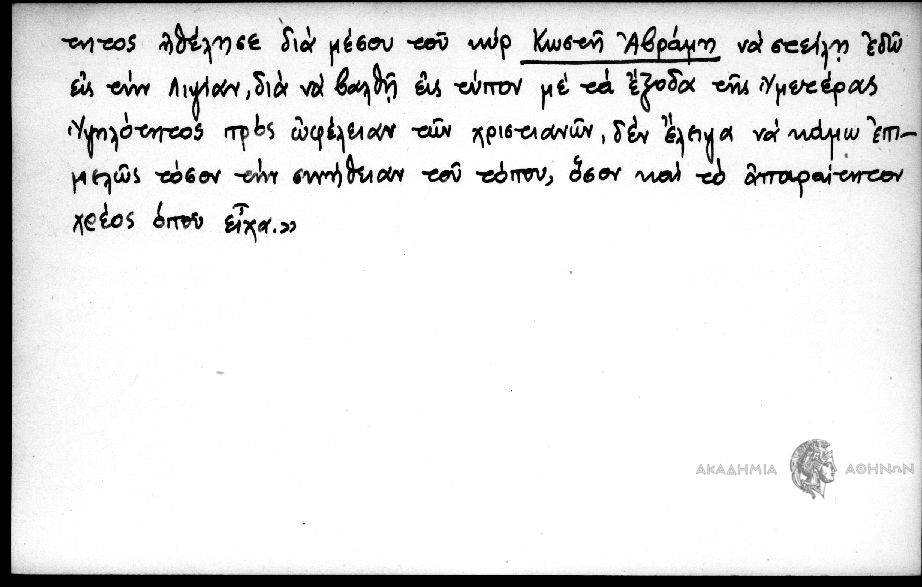 τητος ἠθέλησε διὰ μέσου τοῦ κὺρ Κωστῆ Ἀβράμη νὰ στείλῃ ἐδῶ
εἰς τὴν Λιψίαν, διὰ νὰ βαλθῇ εἰς τύπον μὲ τὰ ἔξοδα τῆς Ὑμετέρας
Ὑψηλότητος πρὸς ὠφέλειαν τῶν χριστιανῶν, δὲν ἔλειψα νὰ κάμω ἐπι-
μελῶς τόσον τὴν συνήθειαν τοῦ τόπου, ὅσον καὶ τὸ ἀπαραίτητον
χρέος ὁποῦ εἶχα.»
ΑΚΑΔΗΜΙΑ ΑΘΗΝΩΝ